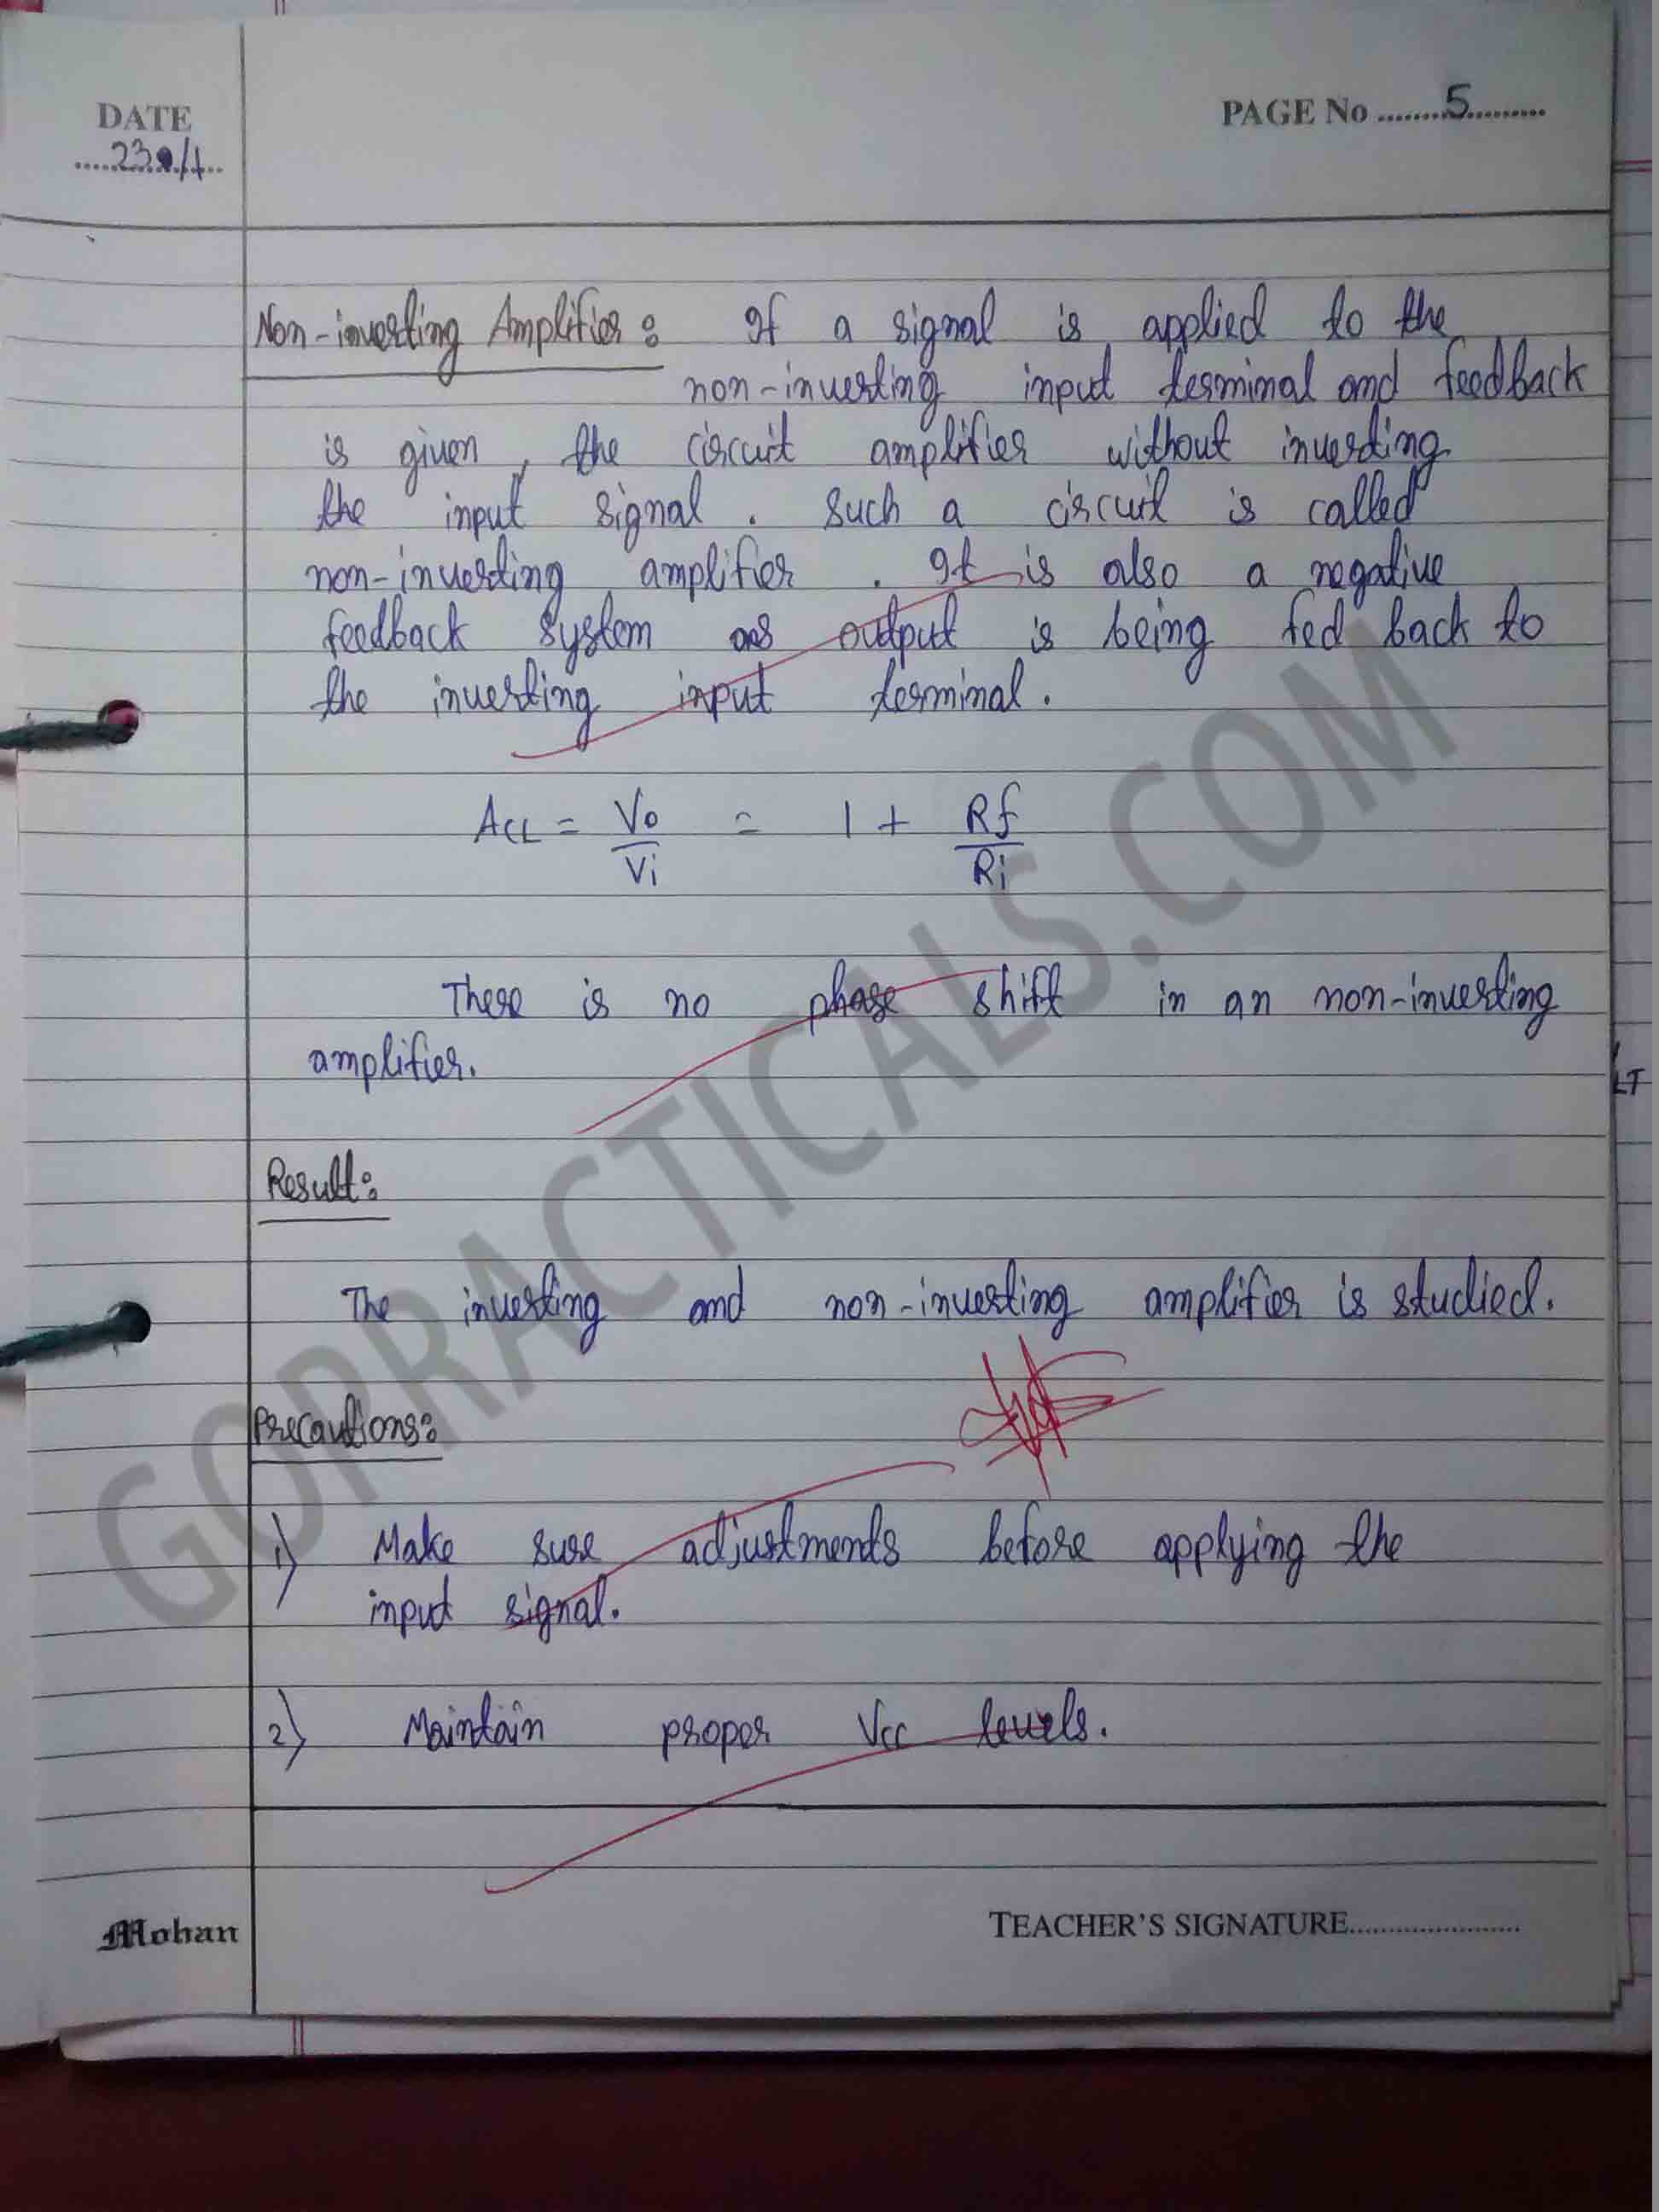 DATE
PAGE No ........5.........
Non-inverting Amplifier : If a signal is applied to the
non-inverting input terminal and feedback
is given, the circuit amplifier without inverting
the input signal. Such a circuit is called
non-inverting amplifier. It is also a negative
feedback system as output is being fed back to
the inverting input terminal.
ACL = Vo/Vi = 1 + Rf/Ri
There is no phase shift in an non-inverting
amplifier.
LT
Result:
The inverting and non-inverting amplifier is studied.
Precautions:
1) Make sure adjustments before applying the
input signal.
2) Maintain proper Vcc levels.
Mohan
TEACHER'S SIGNATURE.......................
GOPRACTICALS.COM